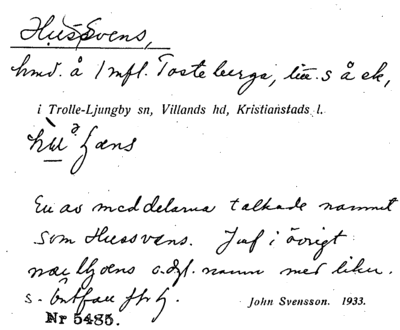 Hussvens,
hmd. å 1 mfl. Tosteberga, litt. s å ek,
i Trolle-Ljungby sn, Villands hd, Kristianstads l.
En av meddelarna talkade namnet
som Hussvens. Jmf i övrigt
namn med liku.
s-
John Svensson. 1933.
Nr 5485.